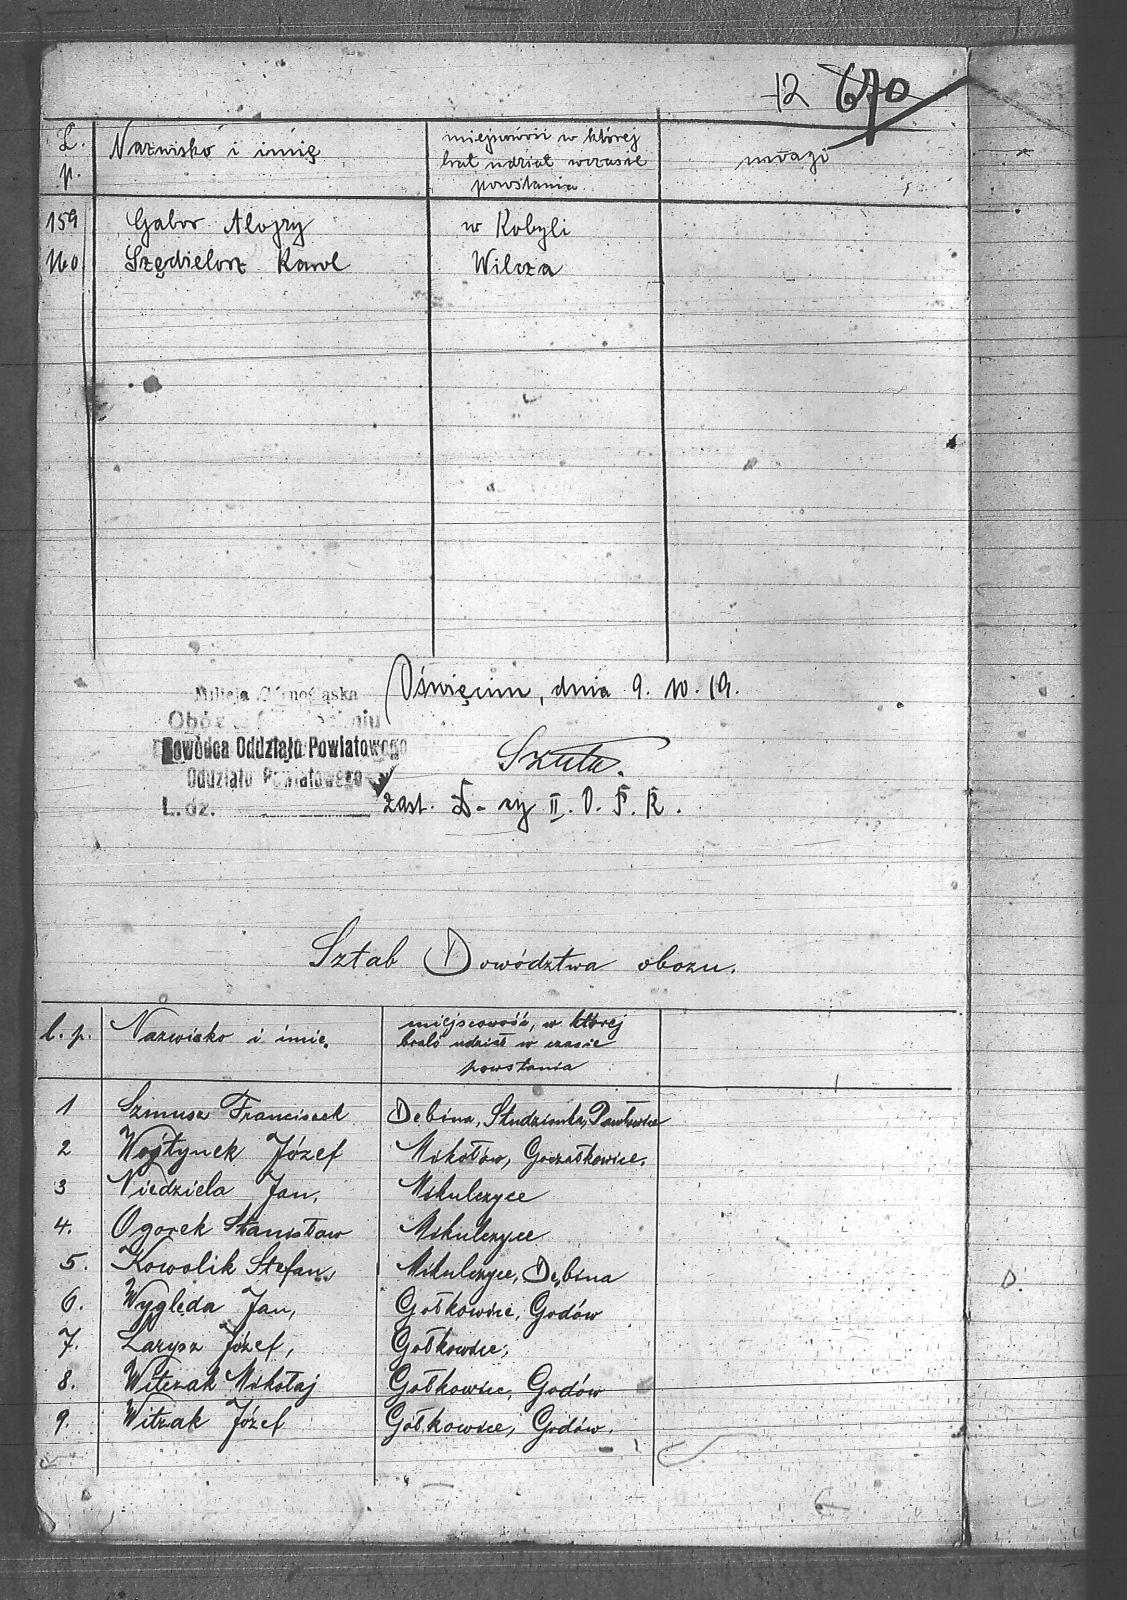 12 670
L. p. Nazwisko i imię miejscowości w której brał udział wczasie powstania uwagi
159 Gabor Alojzy w Kobyli
160 Szędzielorz Karol Wilcza
Oświęcim, dnia 9. 10. 19.
Milicja Górnośląska
Obóz
Dowódca Oddziału Powiatowego
Oddziału Powiatowego
L. dz.
zast. D-cy II. O. P. R.
Sztab Dowództwa obozu.
l. p. Nazwisko i imię. miejscowość, w której brało udział w czasie powstania
1 Szmusz Franciszek Dębina, Studzionka, Pawłowice
2 Wojtynek Józef Mikołów, Goczałkowice.
3 Niedziela Jan, Mikulczyce
4. Ogorek Stanisław Mikulczyce
5. Kowolik Stefan, Mikulczyce, Dębina
6. Wygleda Jan, Gołkowice, Godów
7. Larysz Józef, Gołkowice,
8. Witczak Mikołaj Gołkowice, Godów
9. Witzak Józef Gołkowice, Godów.